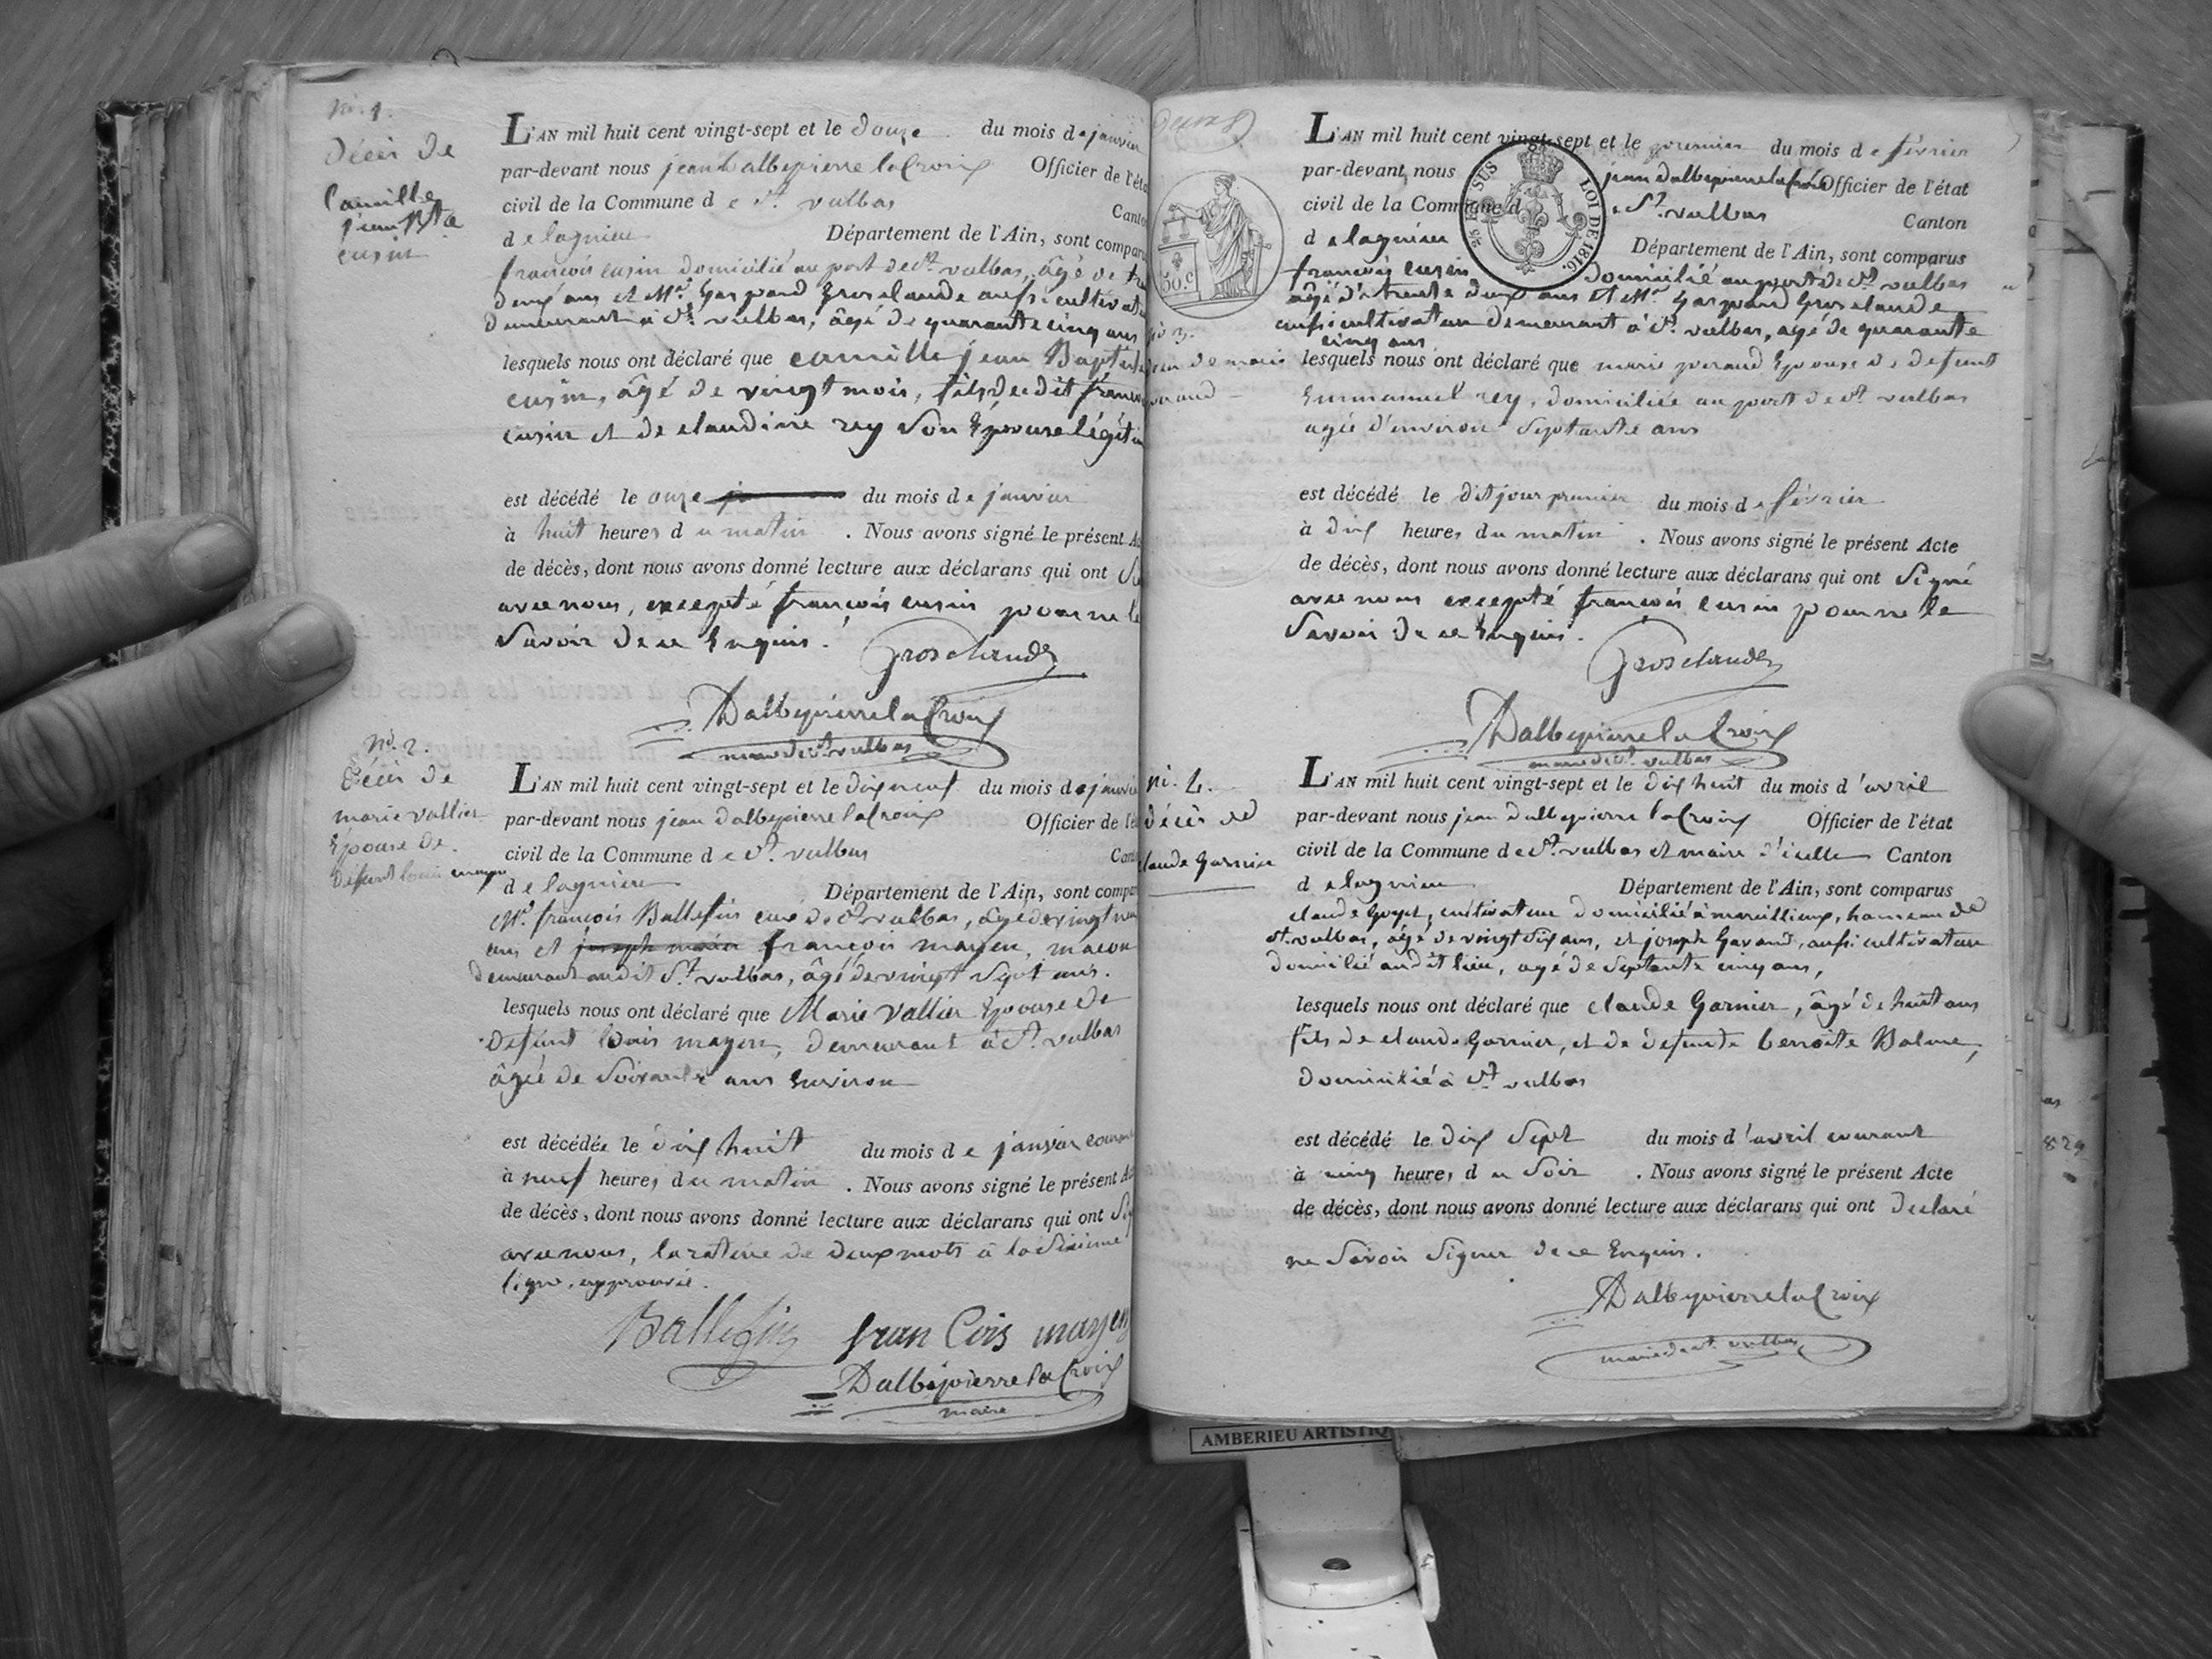 N.º 1.
Décès de
Camille
jean Bte
cusin
L'AN mil huit cent vingt-sept et le douze du mois de janvier
par-devant nous jean Dalbepierre lacroix Officier de l'éta
civil de la Commune de St. vulbas Canto
de lagnieu Département de l'Ain, sont comparu
françois cusin domicilié au port de St. vulbas, âgé de tre
deux ans et Mr. Gaspard Grosclaude aussi cultivate
demeurant à St. vulbas, âgé de quarante cinq ans
lesquels nous ont déclaré que camille jean Baptiste
cusin, âgé de vingt mois, fils du dit franco
cusin et de claudine rey son Épouse légiti
est décédé le onze du mois de janvier
à huit heures du matin . Nous avons signé le présent A
de décès, dont nous avons donné lecture aux déclarans qui ont Si
avec nous, excepté françois cusin pour ne le
Savoir de ce Enquis.
Grosclaude
Dalbepierre lacroix
maire de St. vulbas
N.º 2.
Décès de
marie vallier
Épouse de
défunt louis mayen
L'AN mil huit cent vingt-sept et le dix neuf du mois de janvie
par-devant nous jean Dalbepierre lacroix Officier de l'ét
civil de la Commune de St. vulbas Cant
de lagnieu Département de l'Ain, sont compar
Mr. françois Ballefin curé de St. vulbas, âgé de vingt neu
ans et joseph françois mayen, macon
demeurant audit St. vulbas, âgé de vingt Sept ans.
lesquels nous ont déclaré que Marie Vallier Épouse de
défunt louis mayen, demeurant à St. vulbas
âgée de Soixante ans Environ
est décédée le dix huit du mois de janvier couran
à neuf heures du matin . Nous avons signé le présent Ac
de décès, dont nous avons donné lecture aux déclarans qui ont Sig
avec nous, la rature de deux mots à la Sixieme
ligne, approuvée.
Ballefin franCois mayen
Dalbepierre la Croix
maire
SUS
LOI DE 1816.
50.c
nº 3.
de marie
L'AN mil huit cent vingt-sept et le premier du mois de février
par-devant nous jean Dalbepierre lacroix Officier de l'état
civil de la Commune de St. vulbas Canton
de lagnieu Département de l'Ain, sont comparus
françois cusin domicilié au port de St. vulbas
âgé de trente deux ans et Mr. Gaspard Grosclaude
aussi cultivateur demeurant à St. vulbas, âgé de quarante
cinq ans
lesquels nous ont déclaré que marie peraud Épouse de défunt
Emmanuel rey, domiciliée au port de St. vulbas
agée d'environ Septante ans
est décédé le dit jour premier du mois de février
à dix heures du matin . Nous avons signé le présent Acte
de décès, dont nous avons donné lecture aux déclarans qui ont Signé
avec nous excepté françois cusin pour ne le
Savoir de ce Enquis.
Grosclaude
Dalbepierre la Croix
maire de St. vulbas
nº. 4.
décès de
claude Garnier
L'AN mil huit cent vingt-sept et le dix huit du mois d'avril
par-devant nous jean Dalbepierre la Croix Officier de l'état
civil de la Commune de St. vulbas et maire d'icelle Canton
de lagnieu Département de l'Ain, sont comparus
claude Goyet, cultivateur domicilié à marcillieux, hameau de
St. vulbas, âgé de vingt Six ans, et joseph Gavand, aussi cultivateur
domicilié au dit lieu, agé de Septante cinq ans,
lesquels nous ont déclaré que claude Garnier, âgé de huit ans
fils de claude Garnier, et de défunte benoite Balme,
domicilié à St. vulbas
est décédé le dix Sept du mois d'avril courant
à cinq heures du Soir . Nous avons signé le présent Acte
de décès, dont nous avons donné lecture aux déclarans qui ont Déclaré
ne Savoir Signer de ce Enquis.
Dalbepierre la Croix
maire de St. vulbas
AMBERIEU ARTISTIQ